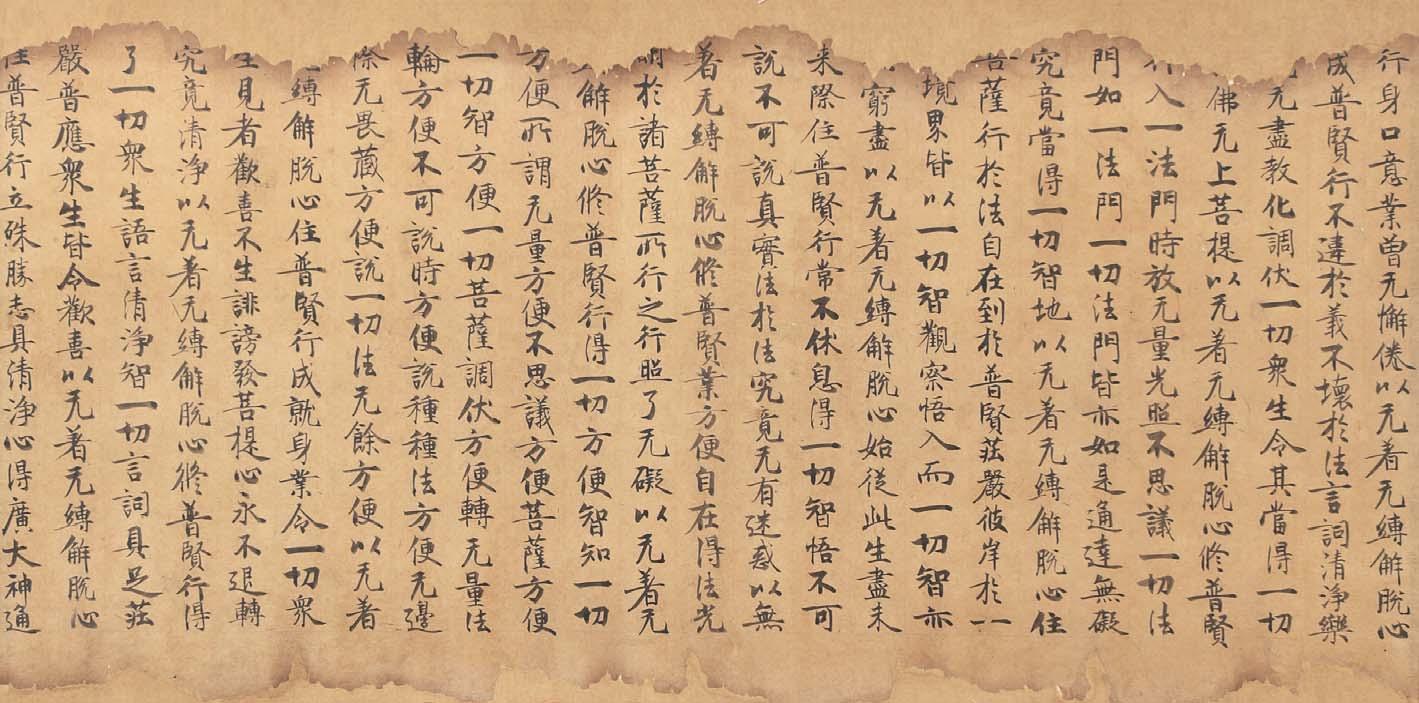 行身口意業曾无懈倦以无著无縛解脫心
成普賢行不違於義不壞於法言詞清淨樂
无盡教化調伏一切衆生令其當得一切
佛无上菩提以无著无縛解脫心修普賢
入一法門時放无量光照不思議一切法
門如一法門一切法門皆亦如是通達無礙
究竟當得一切智地以无著无縛解脫心住
菩薩行於法自在到於普賢莊嚴彼岸於一
境界皆以一切智觀察悟入而一切智亦
窮盡以无著无縛解脫心始從此生盡未
来際住普賢行常不休息得一切智悟不可
說不可說真實法於法究竟无有迷惑以無
著无縛解脫心修普賢業方便自在得法光
明於諸菩薩所行之行照了无礙以无著无
解脫心修普賢行得一切方便智知一切
方便所謂无量方便不思議方便菩薩方便
一切智方便一切菩薩調伏方便轉无量法
輪方便不可說時方便說種種法方便无邊
際无畏藏方便說一切法无餘方便以无著
縛解脫心住普賢行成就身業令一切衆
生見者歡喜不生誹謗發菩提心永不退轉
究竟清淨以无著无縛解脫心修普賢行得
了一切衆生語言清淨智一切言詞具足莊
嚴普應衆生皆令歡喜以无著无縛解脫心
住普賢行立殊勝志具清淨心得廣大神通